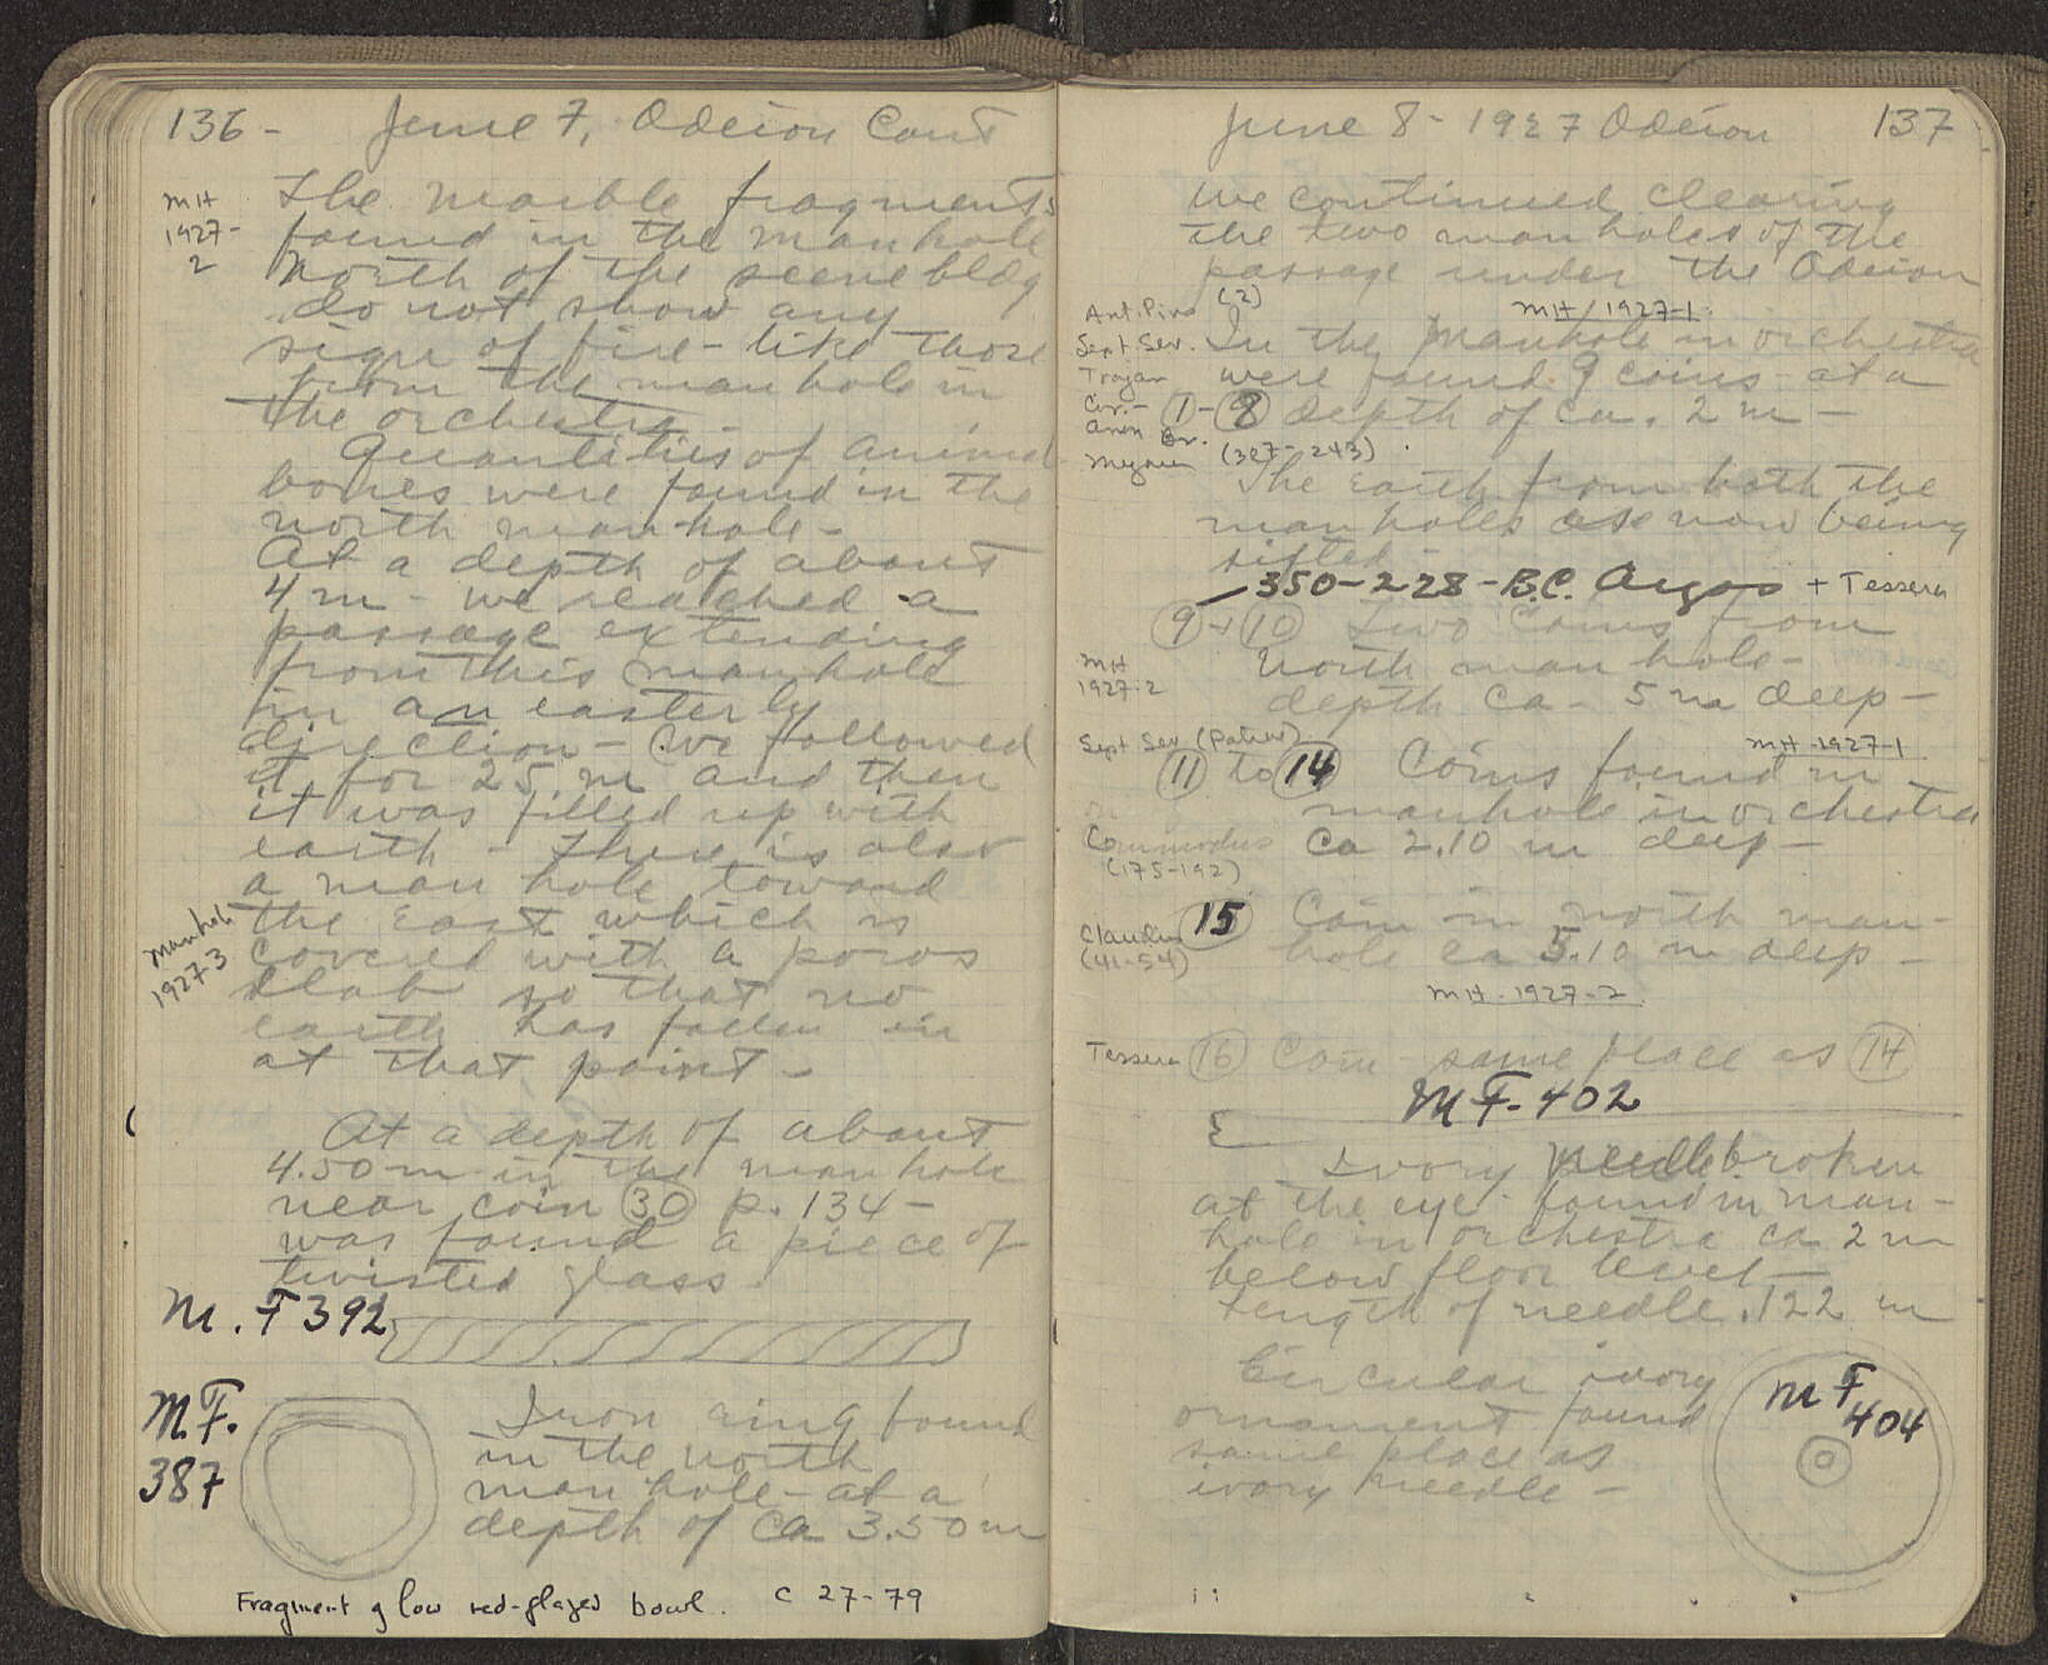 136 - June 7, Odeion Cont
MH
1927-
2
The marble fragments
found in the manhole
north of the scene bldg
do not show any
sign of fire - like those
from the manhole in
the orchestra -
Quantities of animal
bones were found in the
north manhole -
At a depth of about
4 m - we reached a
passage extending
from this manhole
in an easterly
direction - we followed
it for 25. m and then
it was filled up with
earth - There is also
a man hole toward
the East which is
covered with a poros
slab so that no
earth has fallen in
at that point -
Manhole
1927-3
At a depth of about
4.50 m in the man hole
near coin 30 p. 134 -
was found a piece of
twisted glass
M. F 392
MF.
387
Iron ring found
in the north
man hole - at a
depth of ca 3.50 m
Fragment of low red-glazed bowl. C 27-79
June 8 - 1927 Odeion 137
We continued clearing
the two man holes of the
passage under the Odeion
Ant. Pius (2)
MH 1927-1.
Sept. Sev. In the Manhole in orchestra
Trajan were found 9 coins at a
Cor. - 1 - 8 depth of ca. 2 m -
Br.
(307-243)
The earth from both the
manholes are now being
sifted -
350-228 - B.C. Argos + Tessera
9 + 10 Two coins from
MH
1927-2
North man hole -
depth ca - 5 m deep -
Sept Sev (Patras)
MH-1927-1
11 to 14 Coins found in
manhole in orchestra
Commodus ca 2.10 m deep -
(175-192)
15 Coin in north man-
Claudius
(41-54)
hole ca 5.10 m deep -
MH-1927-2
Tessera 16 Coin same place as 14
MF-402
Ivory needle broken
at the eye - found in man-
hole in orchestra ca 2 m
below floor level -
Length of needle .122 m
Circular ivory
ornament found
same place as
ivory needle -
MF
404